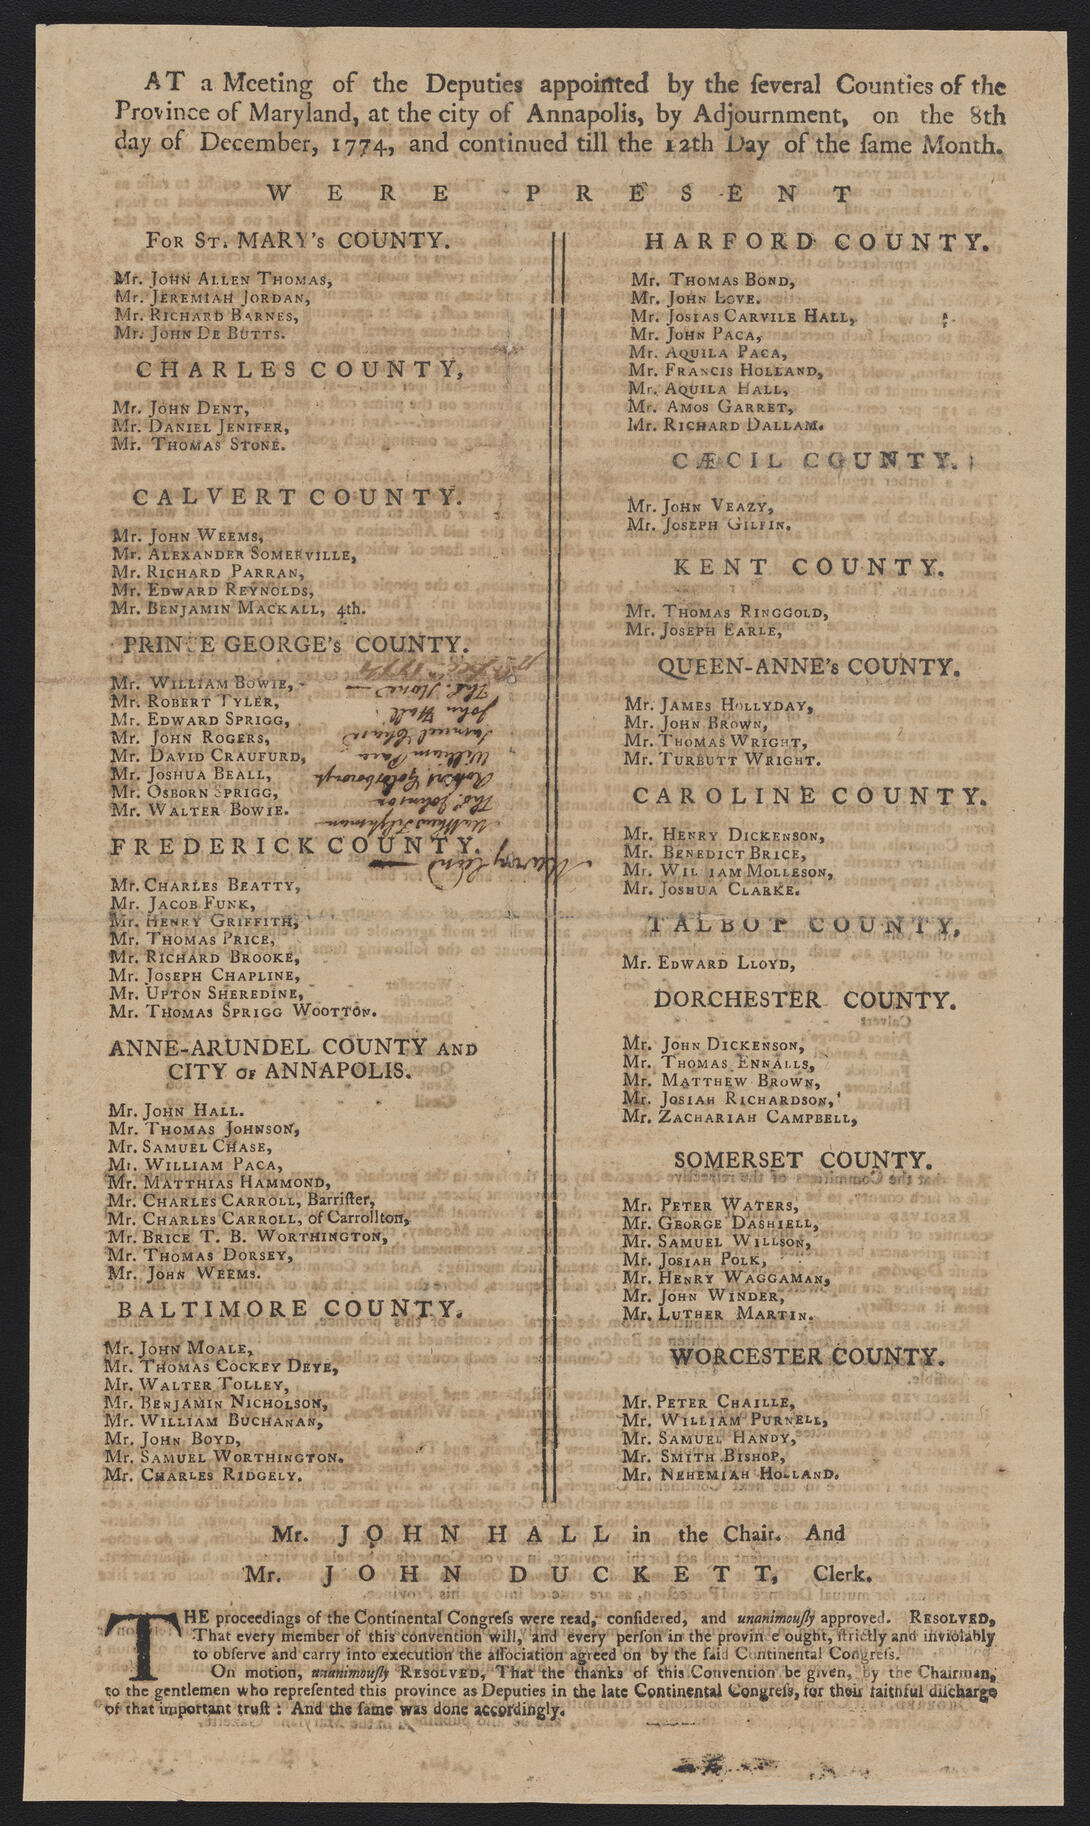 AT a Meeting of the Deputies appointed by the ſeveral Counties of the
Province of Maryland, at the city of Annapolis, by Adjournment, on the 8th
day of December, 1774, and continued till the 12th Day of the ſame Month.
WERE PRESENT
FOR ST. MARY's COUNTY.
Mr. JOHN ALLEN THOMAS,
Mr. JEREMIAH JORDAN,
Mr. RICHARD BARNES,
Mr. JOHN DE BUTTS.
CHARLES COUNTY,
Mr. JOHN DENT,
Mr. DANIEL JENIFER,
Mr. THOMAS STONE.
CALVERT COUNTY.
Mr. JOHN WEEMS,
Mr. ALEXANDER SOMERVILLE,
Mr. RICHARD PARRAN,
Mr. EDWARD REYNOLDS,
Mr. BENJAMIN MACKALL, 4th.
PRINCE GEORGE's COUNTY.
Mr. WILLIAM BOWIE,
Mr. ROBERT TYLER,
Mr. EDWARD SPRIGG,
Mr. JOHN ROGERS,
Mr. DAVID CRAUFURD,
Mr. JOSHUA BEALL,
Mr. OSBORN SPRIGG,
Mr. WALTER BOWIE.
Maryland
Matthew Tilghman
Thos. Johnson
Robert Goldsborough
William Paca
Samuel Chase
John Hall
Thos. Stone
Decr. 1774
FREDERICK COUNTY.
Mr. CHARLES BEATTY,
Mr. JACOB FUNK,
Mr. HENRY GRIFFITH,
Mr. THOMAS PRICE,
Mr. RICHARD BROOKE,
Mr. JOSEPH CHAPLINE,
Mr. UPTON SHEREDINE,
Mr. THOMAS SPRIGG WOOTTON.
ANNE-ARUNDEL COUNTY AND
CITY OF ANNAPOLIS.
Mr. JOHN HALL.
Mr. THOMAS JOHNSON,
Mr. SAMUEL CHASE,
Mr. WILLIAM PACA,
Mr. MATTHIAS HAMMOND,
Mr. CHARLES CARROLL, Barriſter,
Mr. CHARLES CARROLL, of Carrollton,
Mr. BRICE T. B. WORTHINGTON,
Mr. THOMAS DORSEY,
Mr. JOHN WEEMS.
BALTIMORE COUNTY.
Mr. JOHN MOALE,
Mr. THOMAS COCKEY DEYE,
Mr. WALTER TOLLEY,
Mr. BENJAMIN NICHOLSON,
Mr. WILLIAM BUCHANAN,
Mr. JOHN BOYD,
Mr. SAMUEL WORTHINGTON.
Mr. CHARLES RIDGELY.
HARFORD COUNTY.
Mr. THOMAS BOND,
Mr. JOHN LOVE.
Mr. JOSIAS CARVILE HALL,
Mr. JOHN PACA,
Mr. AQUILA PACA,
Mr. FRANCIS HOLLAND,
Mr. AQUILA HALL,
Mr. AMOS GARRET,
Mr. RICHARD DALLAM.
CÆCIL COUNTY.
Mr. JOHN VEAZY,
Mr. JOSEPH GILPIN.
KENT COUNTY.
Mr. THOMAS RINGGOLD,
Mr. JOSEPH EARLE,
QUEEN-ANNE's COUNTY.
Mr. JAMES HOLLYDAY,
Mr. JOHN BROWN,
Mr. THOMAS WRIGHT,
Mr. TURBUTT WRIGHT.
CAROLINE COUNTY.
Mr. HENRY DICKENSON,
Mr. BENEDICT BRICE,
Mr. WIL IAM MOLLESON,
Mr. JOSHUA CLARKE.
TALBOT COUNTY,
Mr. EDWARD LLOYD,
DORCHESTER COUNTY.
Mr. JOHN DICKENSON,
Mr. THOMAS ENNALLS,
Mr. MATTHEW BROWN,
Mr. JOSIAH RICHARDSON,
Mr. ZACHARIAH CAMPBELL,
SOMERSET COUNTY.
Mr. PETER WATERS,
Mr. GEORGE DASHIELL,
Mr. SAMUEL WILLSON,
Mr. JOSIAH POLK,
Mr. HENRY WAGGAMAN,
Mr. JOHN WINDER,
Mr. LUTHER MARTIN.
WORCESTER COUNTY.
Mr. PETER CHAILLE,
Mr. WILLIAM PURNELL,
Mr. SAMUEL HANDY,
Mr. SMITH BISHOP,
Mr. NEHEMIAH HOLLAND.
Mr. JOHN HALL in the Chair. And
Mr. JOHN DUCKETT, Clerk.
THE proceedings of the Continental Congreſs were read, conſidered, and unanimouſly approved. RESOLVED,
That every member of this convention will, and every perſon in the provin e ought, ſtrictly and inviolably
to obſerve and carry into execution the aſſociation agreed on by the ſaid Continental Congreſs.
On motion, unanimouſly RESOLVED, That the thanks of this Convention be given, by the Chairman,
to the gentlemen who repreſented this province as Deputies in the late Continental Congreſs, for their faithful diſcharge
of that important truſt: And the ſame was done accordingly.